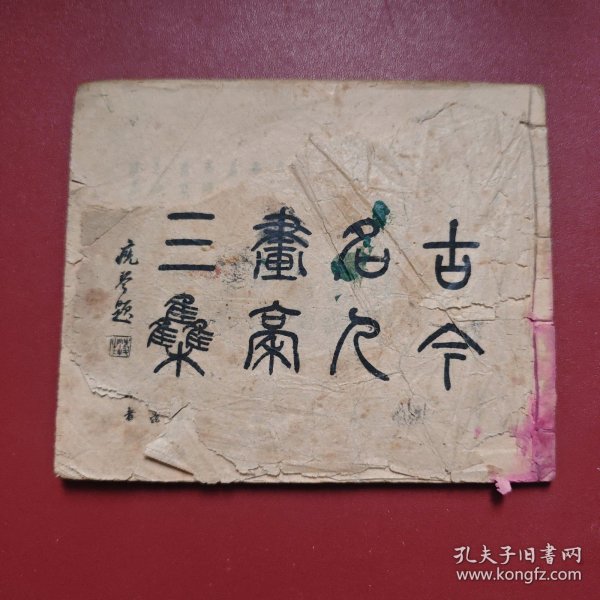 古今
名人
畫稾
三集
孔夫子旧書网
www.kongfz.com